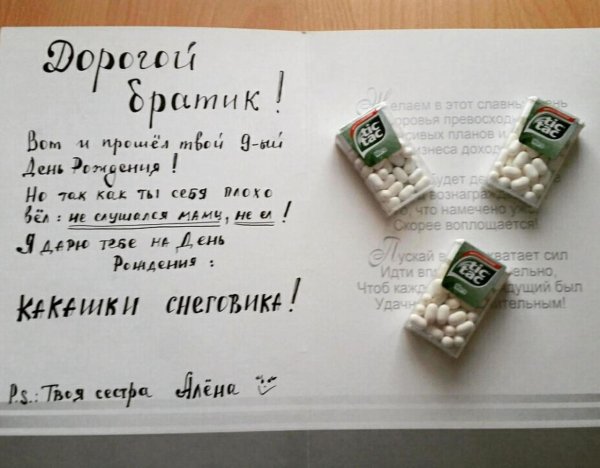 Дорогой
братик!
Вот и прошёл твой 9-ый
День Рождения!
Но так как ты себя плохо
вёл: не слушался маму, не ел!
Я дарю тебе на День
Рождения:
КАКАШКИ СНЕГОВИКА!
P.s.: Твоя сестра Алёна
Желаем в этот славный день
превосход
планов и
бизнеса доход
tic tac
tic tac
будет де
вознаграж
что намечено уж
Скорее воплощается!
Пускай в хватает сил
Идти вп
Чтоб кажд ущий был
Удачн ительным!
tic tac